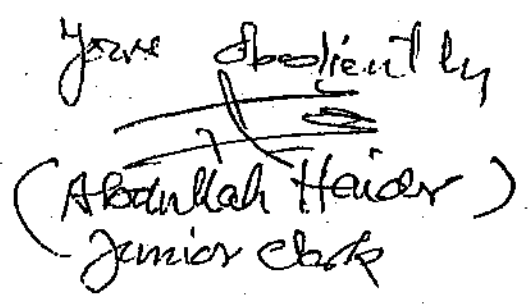 Yours Obediently
(Abdullah Haider)
Junior Clerk